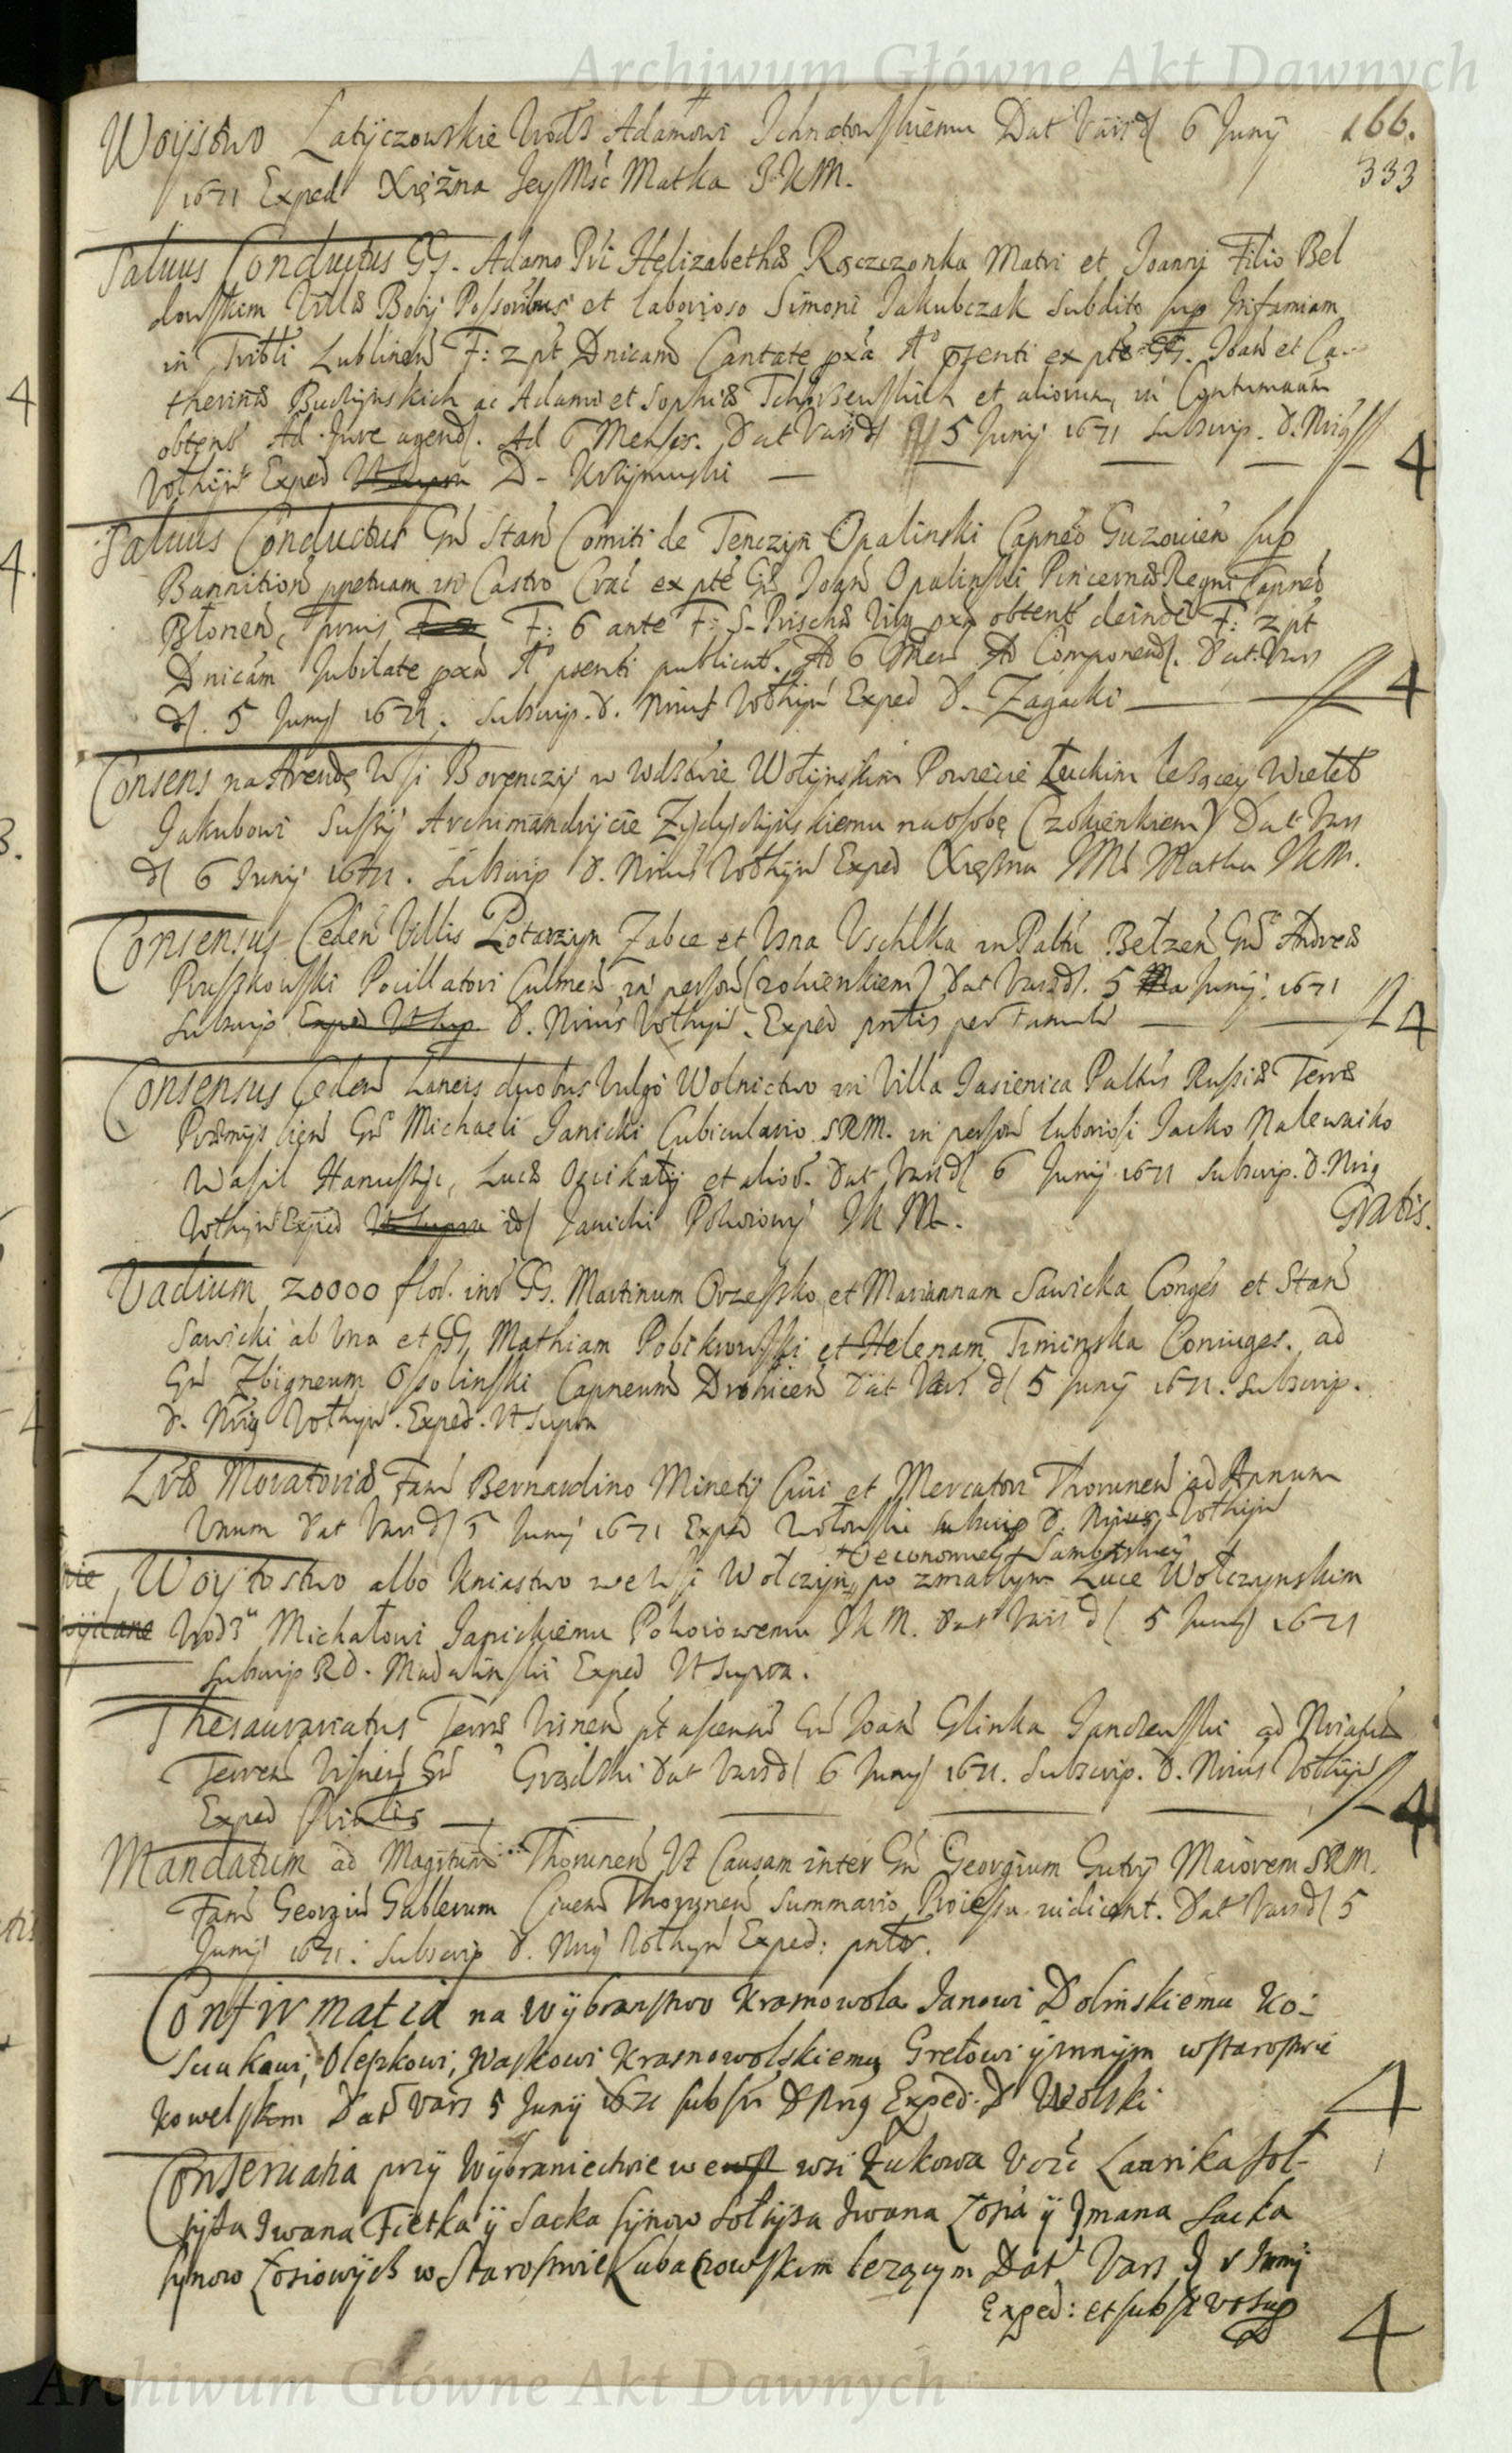 Archiwum Główne Akt Dawnych
166.
333
Woijstwo Latyczowskie Urodz Adamowi Dat Vars d 6 Junij
1671 Exped Xiężna Jey Mść Matka J K M.
Saluus Conductus GG. Adamo Pri Helizabethæ Rączczonka Matri et Joanni Filio Bel
dowskim Villæ Bobij Possoribus et laborioso Simoni Jakubczak Subdito sup Infamiam
in Tribli Lublinen F: 2 pt Dnicam Cantate pxa A° psenti ex pte GG. Joan et Ca-
therinæ ac Adami et Sophiæ et aliorum in Contumaciam
obtent Ad Jure agend. Ad 6 Menses. Dat Vars d 5 Junij 1671 Subscrip. D. Nrig
Wothijn Exped Ut supra D. 4
Saluus Conductus Gn Stan Comiti de Tenczyn Opalinski Capneo Guzouien sup
Bannition ppetuam in Castro Crac ex pte Gn Joan Opalinski Pincernæ Regni Capnei
Blonen, prius F: 6 ante F: S. Priscæ Virg pxa obtent deinde F: 2 pt
Dnicam Jubilate pxa A° psenti publicat. Ad 6 Men Ad Componend. Dat Vars
d. 5 Junij 1671. Subscrip. D. Nrius Wothijn Exped D. Zagacki 4
Consens na Arendę Wsi Borenczy w Wdztwie Wołynskim Powiecie Łuckim leżącey Wieleb
Jakubowi Suszy Archimandrycie Zydyczynskiemu na osobę (z okienkiem) Dat Vars
d 6 Junij 1671. Subscrip D. Nrius Wothijn Exped Xiężna JMć Matka JKM.
Consensus Ceden Villis Potarzyn Zabce et Una Uschlka in Paltu Belzen Gn Andreæ
Ruszkowski Pocillatori Culmen in person (z okienkiem) Dat Vars d. 5 Junij 1671
Subscrip Exped Ut sup D. Nrius Wothijn. Exped pntis per Famulū 4
Consensus Ceden Laneis duobus Vulgo Wolnictwo in Villa Jasienica Paltus Russiæ Terræ
Przemyslien Gn Michaeli Janicki Cubiculario SRM. in person laboriosi Jacko Nalewaiko
Wasil Hanuszyc, Lucæ et alior. Dat Vars d 6 Junij 1671 Subscrip. D. Nrig
Wothijn Exped Ut supra id Janicki Pokoiowy JKM. Gratis.
Vadium 20000 flor. int GG. Martinum Orzeszko et Mariannam Sawicka Conges et Stan
Sawicki ab Una et GG. Mathiam Pobikrowski et Helenam Timinska Coniuges. ad
Gn Zbigneum Ossolinski Capneum Drohicen Dat Vars d 5 Junij 1671. Subscrip.
D. Nrig Wothijn. Exped. Ut supra
Lræ Moratoriæ Fam Bernardino Minety Ciui et Mercatori Thorunen ad Annum
Unum Dat Vars d 5 Junij 1671 Exped Wolowski Subscrip D. Nrius Wothijn
+ Oeconomiey Samborskiey
Woytostwo albo Kniastwo we Wsi Wołczyn po zmarłym Luce Wołczynskim
Urodz Michałowi Janickiemu Pokoiowemu JKM. Dat Vars d. 5 Junij 1671
Subscrip RD. Madalinski Exped Ut supra.
Thesaurariatus Terræ Visnen pt ascens Gn Joan Glinka Janczewski ad
Terren Visnen Gn Grądzki Dat Vars d 6 Junij 1671. Subscrip. D. Nrius Wothijn
Exped 4
Mandatum ad Magistum Thorunen Ut Causam inter Gn Georgium Gutry Maiorem SRM.
Fam Georgiu Gablerum Ciuem Thorunen Summario Processu iudicent. Dat Vars d 5
Junij 1671. Subscrip D. Nrij Wothijn Exped: pntes.
Confirmatia na Wybranstwo Krasnowola Janowi Dolinskiemu Ko-
Suukowi, Oleszkowi, Waskowi Krasnowolskiemu Gretowi ÿ innÿm w starostwie
Kowelskim Dat Vars 5 Junij 1671 subscr D Nrig Exped: D Wolski 4
Conseruatia przÿ Wÿbraniectwie we wsi Łukowa Laurika soł-
tysa Iwana Fietka ÿ Sacka sÿnow sołtysa Iwana Łosia ÿ Jmana Sacka
sÿnow Łosiowÿch w Starostwie Lubaczowskim leżącym Dat Vars d V Junij
Exped: et subscr Ut sup 4
Archiwum Główne Akt Dawnych